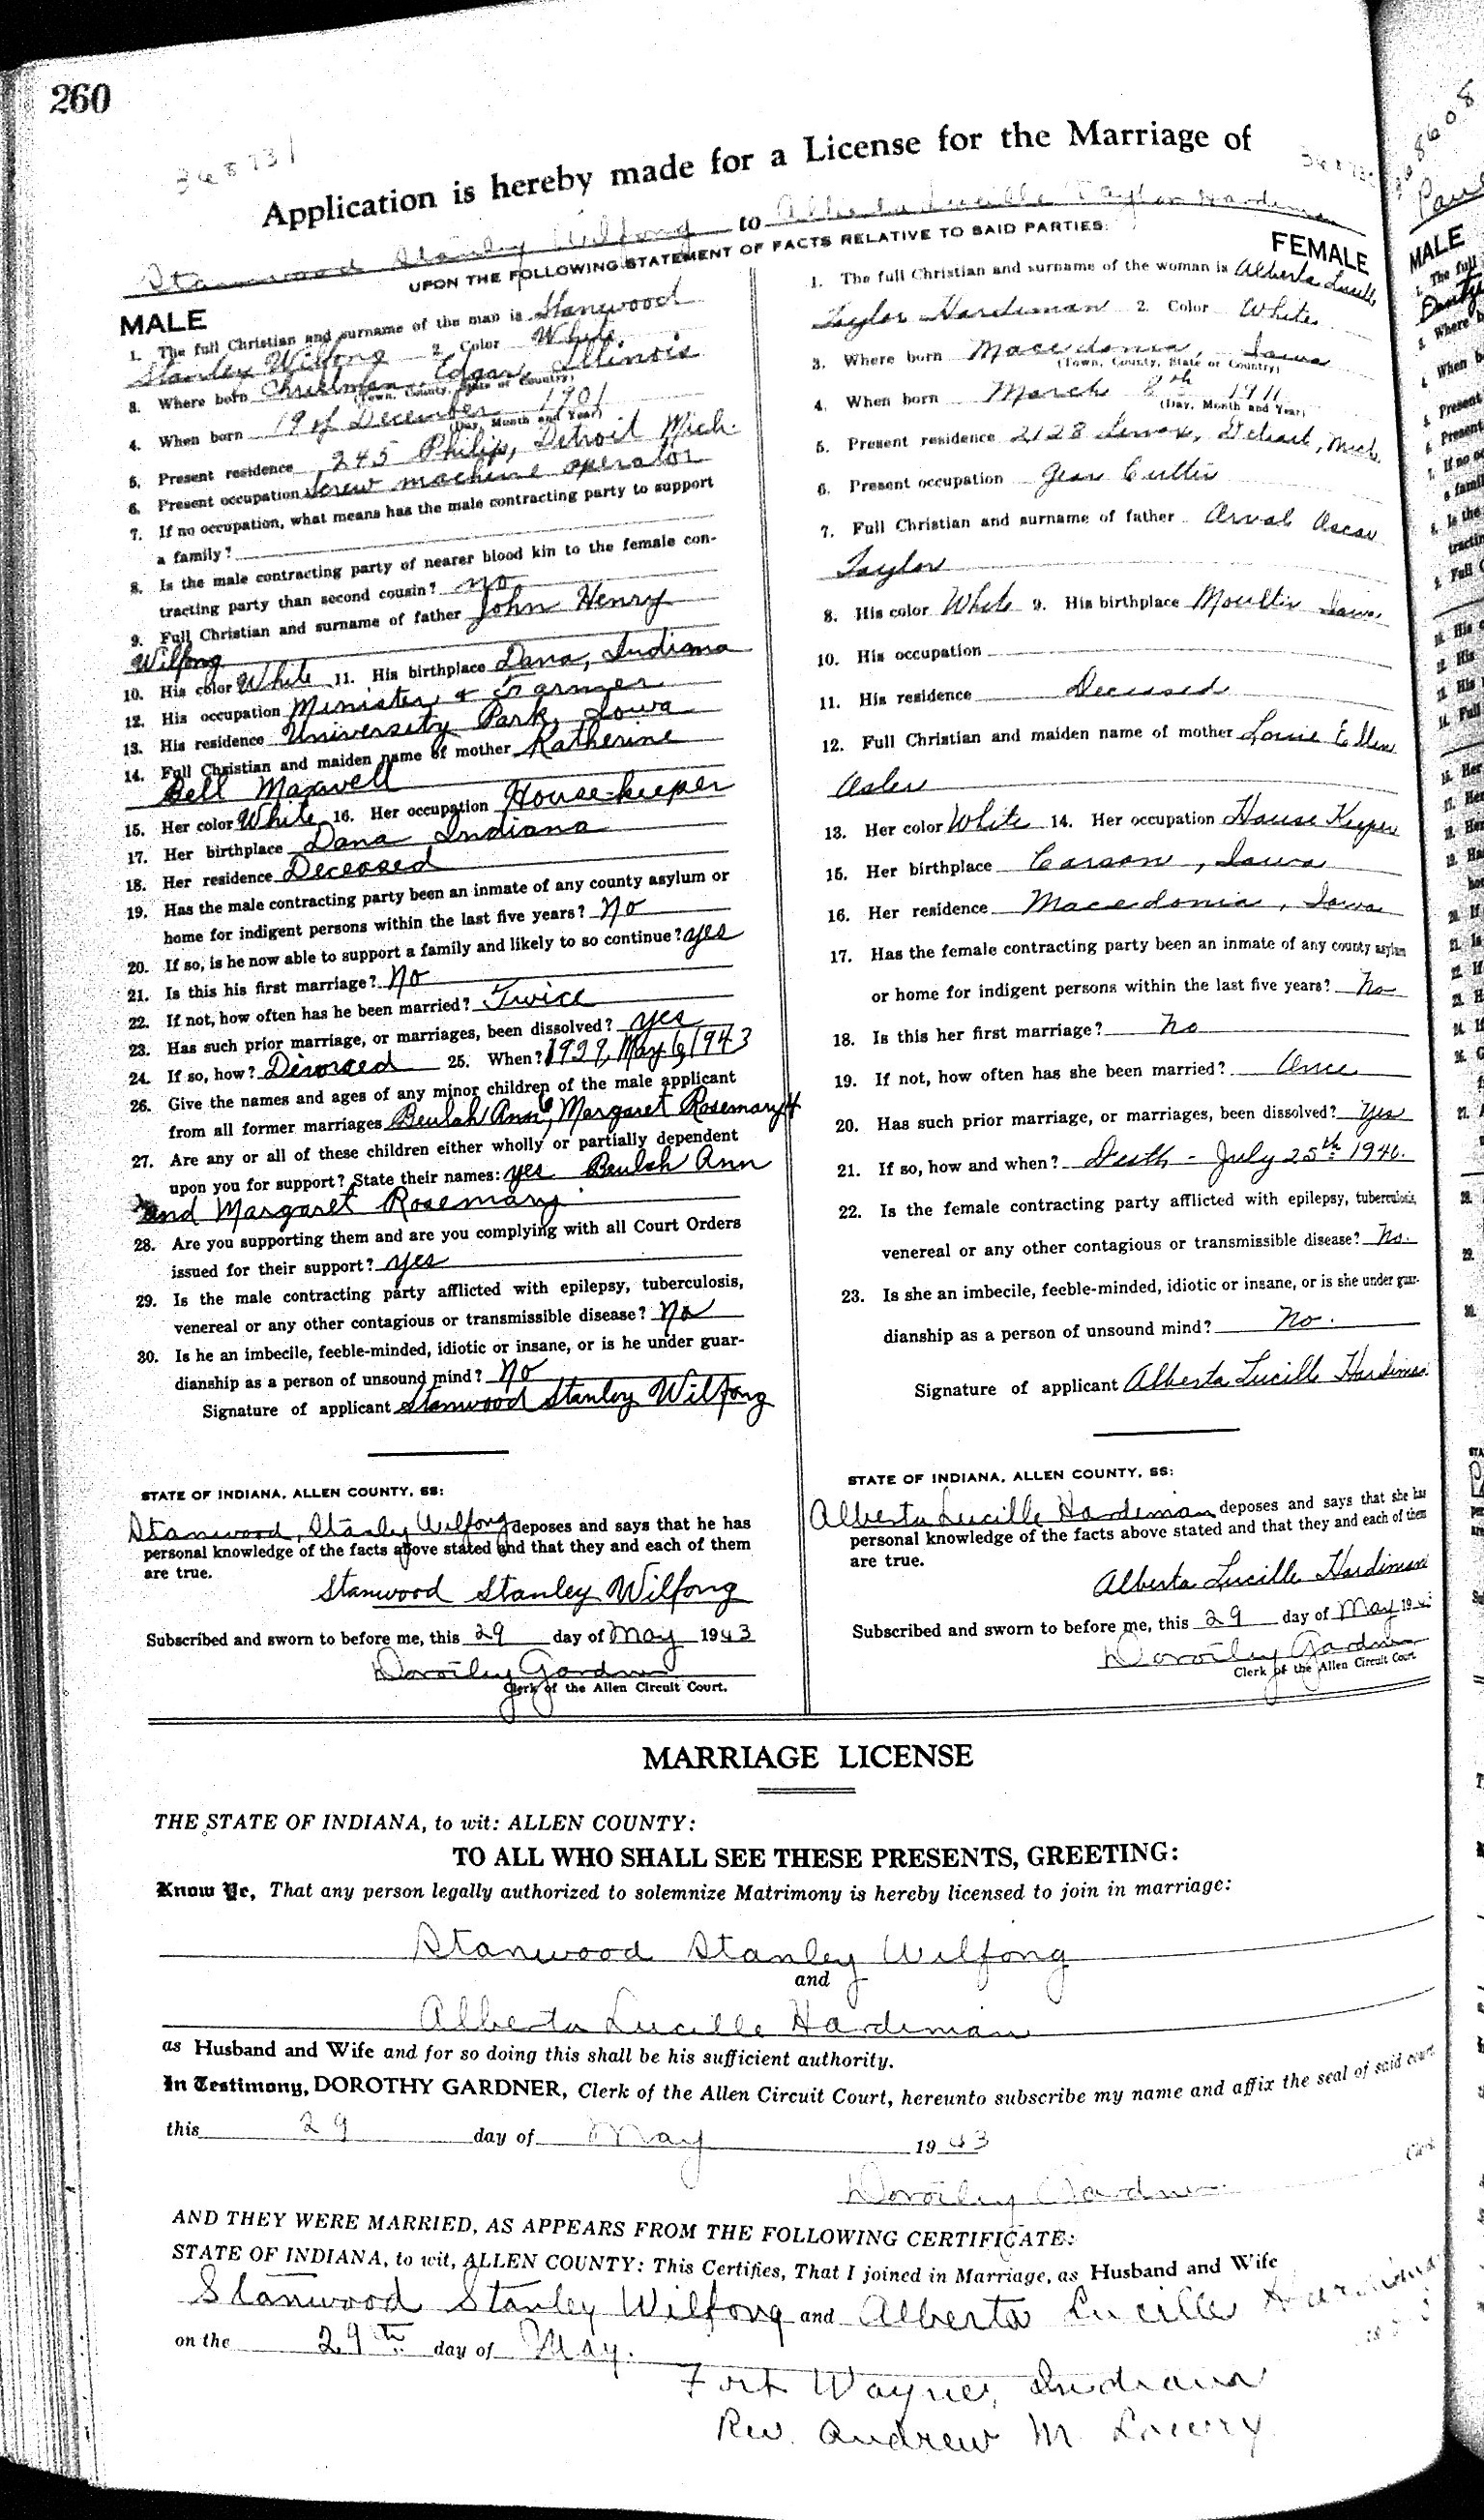 260
Application is hereby made for a License for the Marriage of
Stanwood Stanley Wilfong to Alberta Lucille Taylor Hardiman
UPON THE FOLLOWING STATEMENT OF FACTS RELATIVE TO SAID PARTIES:
MALE
1. The full Christian and surname of the man is Stanwood
Stanley Wilfong 2. Color White
3. Where born Chrisman, Edgar, Illinois
(Town, County, State or Country)
4. When born 19 of December 1901
(Day, Month and Year)
5. Present residence 245 Philip, Detroit Mich.
6. Present occupation Screw machine operator
7. If no occupation, what means has the male contracting party to support
a family?
8. Is the male contracting party of nearer blood kin to the female con-
tracting party than second cousin? no
9. Full Christian and surname of father John Henry
Wilfong
10. His color White 11. His birthplace Dana, Indiana
12. His occupation Minister & Farmer
13. His residence University Park, Iowa
14. Full Christian and maiden name of mother Katherine
Bell Maxwell
15. Her color White 16. Her occupation House-keeper
17. Her birthplace Dana Indiana
18. Her residence Deceased
19. Has the male contracting party been an inmate of any county asylum or
home for indigent persons within the last five years? No
20. If so, is he now able to support a family and likely to so continue? yes
21. Is this his first marriage? No
22. If not, how often has he been married? Twice
23. Has such prior marriage, or marriages, been dissolved? yes
24. If so, how? Divorced 25. When? 1929, May 6, 1943
26. Give the names and ages of any minor children of the male applicant
from all former marriages Beulah Ann 6, Margaret Rosemary 4
27. Are any or all of these children either wholly or partially dependent
upon you for support? State their names: yes Beulah Ann
and Margaret Rosemary.
28. Are you supporting them and are you complying with all Court Orders
issued for their support? yes
29. Is the male contracting party afflicted with epilepsy, tuberculosis,
venereal or any other contagious or transmissible disease? No
30. Is he an imbecile, feeble-minded, idiotic or insane, or is he under guar-
dianship as a person of unsound mind? No
Signature of applicant Stanwood Stanley Wilfong
STATE OF INDIANA, ALLEN COUNTY, SS:
Stanwood, Stanley Wilfong deposes and says that he has
personal knowledge of the facts above stated and that they and each of them
are true.
Stanwood Stanley Wilfong
Subscribed and sworn to before me, this 29 day of May 1943
Dorothy Gardner
Clerk of the Allen Circuit Court.
FEMALE
1. The full Christian and surname of the woman is Alberta Lucille
Taylor Hardiman 2. Color White
3. Where born Macedonia, Iowa
(Town, County, State or Country)
4. When born March 8th 1911
(Day, Month and Year)
5. Present residence 2128 Lenox, Detroit, Mich.
6. Present occupation Gear Cutter
7. Full Christian and surname of father Orval Oscar
Taylor
8. His color White 9. His birthplace Moulton Iowa
10. His occupation
11. His residence Deceased
12. Full Christian and maiden name of mother Ellen
13. Her color White 14. Her occupation House Keeper
15. Her birthplace Carson, Iowa
16. Her residence Macedonia, Iowa
17. Has the female contracting party been an inmate of any county asylum
or home for indigent persons within the last five years? No
18. Is this her first marriage? No
19. If not, how often has she been married? Once
20. Has such prior marriage, or marriages, been dissolved? Yes
21. If so, how and when? Death - July 25th 1940.
22. Is the female contracting party afflicted with epilepsy, tuberculosis,
venereal or any other contagious or transmissible disease? No.
23. Is she an imbecile, feeble-minded, idiotic or insane, or is she under guar-
dianship as a person of unsound mind? No.
Signature of applicant Alberta Lucille Hardiman
STATE OF INDIANA, ALLEN COUNTY, SS:
Alberta Lucille Hardiman deposes and says that she has
personal knowledge of the facts above stated and that they and each of them
are true.
Alberta Lucille Hardiman
Subscribed and sworn to before me, this 29 day of May 19
Dorothy Gardner
Clerk of the Allen Circuit Court
MARRIAGE LICENSE
THE STATE OF INDIANA, to wit: ALLEN COUNTY:
TO ALL WHO SHALL SEE THESE PRESENTS, GREETING:
Know Ye, That any person legally authorized to solemnize Matrimony is hereby licensed to join in marriage:
Stanwood Stanley Wilfong
and
Alberta Lucille Hardiman
as Husband and Wife and for so doing this shall be his sufficient authority.
In Testimony, DOROTHY GARDNER, Clerk of the Allen Circuit Court, hereunto subscribe my name and affix the seal of said court
this 29 day of May 1943
Dorothy Gardner Clerk
AND THEY WERE MARRIED, AS APPEARS FROM THE FOLLOWING CERTIFICATE:
STATE OF INDIANA, to wit, ALLEN COUNTY: This Certifies, That I joined in Marriage, as Husband and Wife
Stanwood Stanley Wilfong and Alberta Lucille Hardiman
on the 29th day of May.
Fort Wayne, Indiana
Rev. Andrew M. Lowry